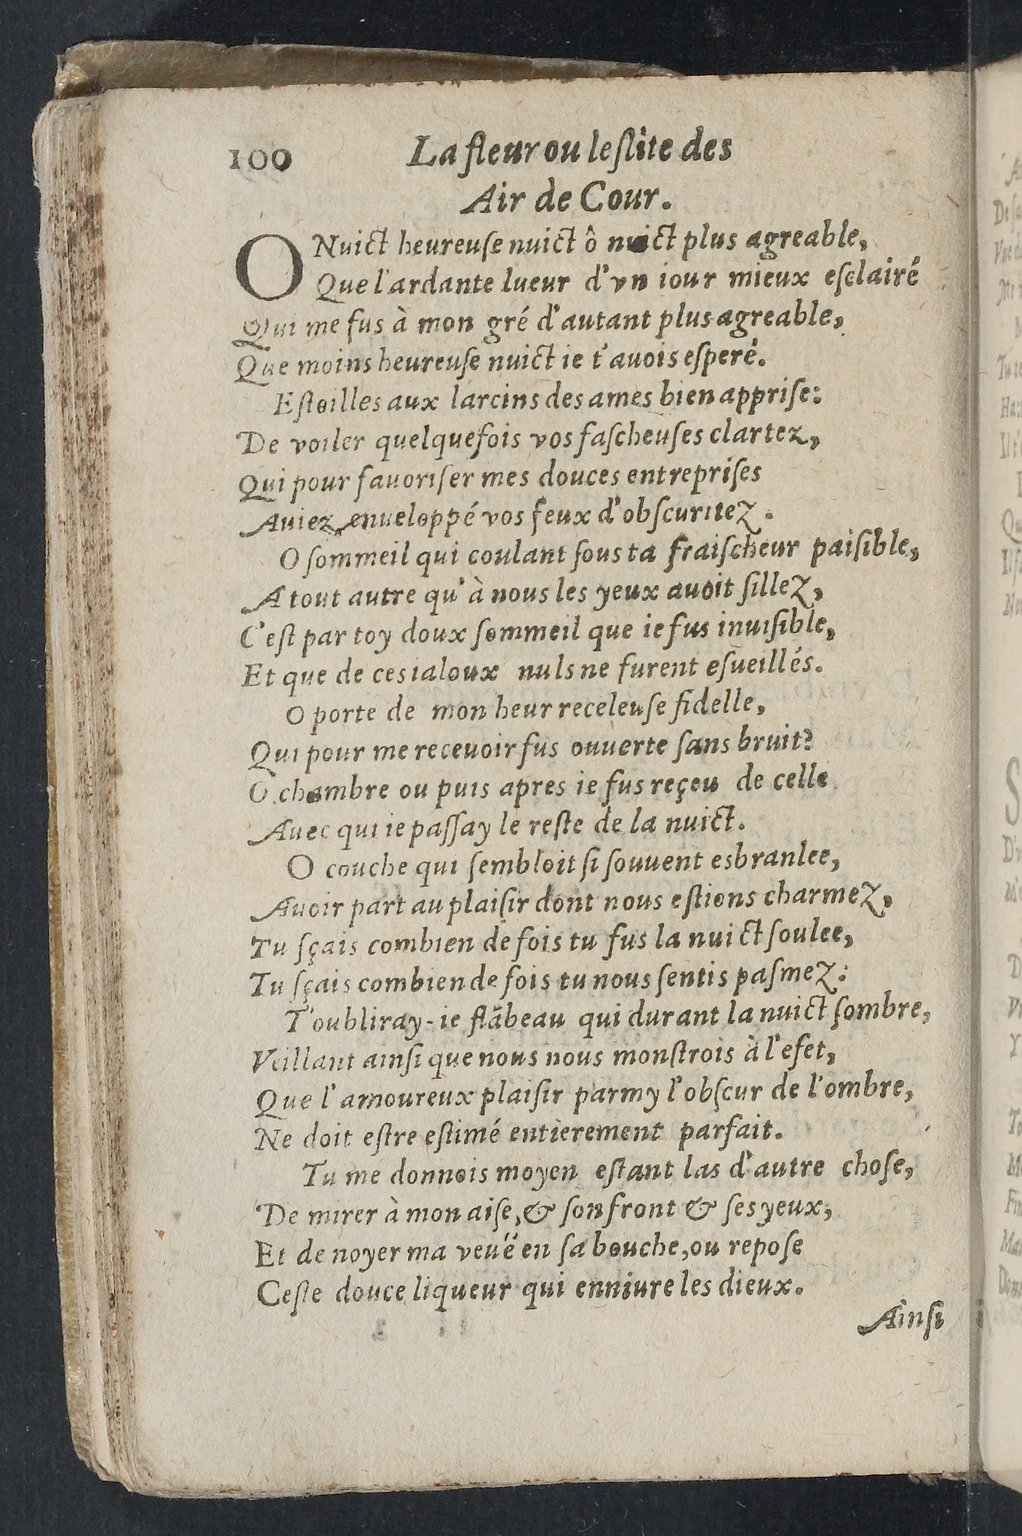 100 La fleur ou leslite des
Air de Cour.
O Nuict heureuse nuict ô nuict plus agreable,
Que l'ardante lueur d'vn iour mieux esclairé
Qui me fus à mon gré d'autant plus agreable,
Que moins heureuse nuict ie t'auois esperé.
Estoilles aux larcins des ames bien apprise:
De voiler quelquefois vos fascheuses clartez,
Qui pour fauoriser mes douces entreprises
Auiez enueloppé vos feux d'obscuritez.
O sommeil qui coulant sous ta fraischeur paisible,
A tout autre qu'à nous les yeux auoit sillez,
C'est par toy doux sommeil que ie fus inuisible,
Et que de ces ialoux nuls ne furent esueillés.
O porte de mon heur receleuse fidelle,
Qui pour me receuoir fus ouuerte sans bruit?
O chambre ou puis apres ie fus reçeu de celle
Auec qui ie passay le reste de la nuict.
O couche qui sembloit si souuent esbranlee,
Auoir part au plaisir dont nous estions charmez,
Tu sçais combien de fois tu fus la nuict soulee,
Tu sçais combien de fois tu nous sentis pasmez:
T'oubliray-ie flãbeau qui durant la nuict sombre,
Veillant ainsi que nous nous monstrois à l'efet,
Que l'amoureux plaisir parmy l'obscur de l'ombre,
Ne doit estre estimé entierement parfait.
Tu me donnois moyen estant las d'autre chose,
De mirer à mon aise, & son front & ses yeux,
Et de noyer ma veuë en sa bouche, ou repose
Ceste douce liqueur qui enniure les dieux.
Ainsi